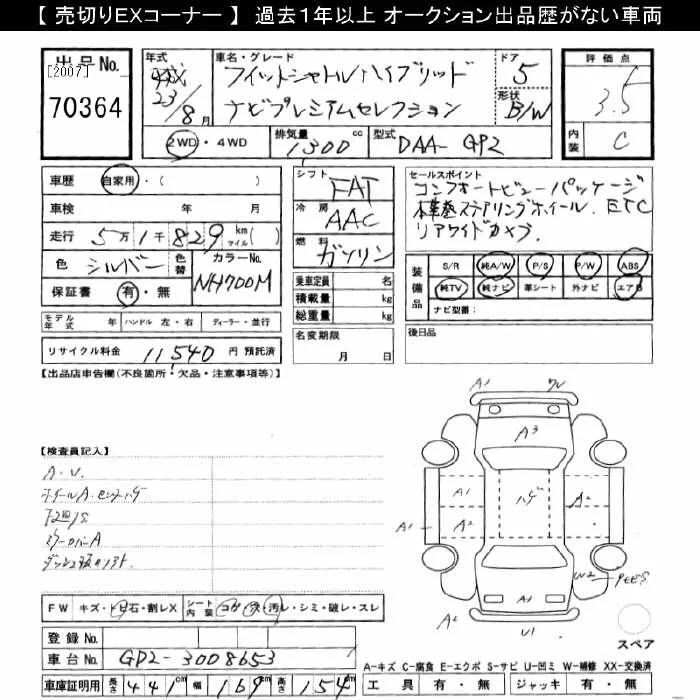 【 売切りEXコーナー 】 過去1年以上 オークション出品歴がない車両
出品No.
[2007]
70364
年式 平成 23/8月
車名・グレード
フィットシャトルハイブリッド
ナビプレミアムセレクション
ドア 5
形状 B/W
評価点 3.5
内装 C
2WD・4WD 排気量 1300cc 型式 DAA-GP2
車歴 自家用・( )
車検 年 月
走行 5万1千829 km マイル( )
色 シルバー 色替 カラーNo. NH700M
保証書 有・無
モデル年式 年 ハンドル 左・右 ディーラー・並行
リサイクル料金 11540 円 預託済
シフト FAT
冷房 AAC
燃料 ガソリン
乗車定員 名
積載量 kg
総重量 kg
名変期限
月 日
セールスポイント
コンフォートビューパッケージ
本革巻ステアリングホイール. ETC
リアワイドカメラ.
装備品
S/R 純A/W P/S P/W ABS
純TV 純ナビ 革シート 外ナビ エアB
ナビ型番:
後日品
【出品店申告欄(不良箇所・欠品・注意事項等)】
【検査員記入】
A・U.
ホイールA.センターハゲ
下廻りS
ミラーカバーA
FW キズ・トビ石・割レX シート内装 コゲ・穴・汚レ・シミ・破レ・スレ
登録 No.
車台 No. GP2-3008653
車庫証明用 長さ 441cm 幅 169cm 高さ 154cm
A1
A3
A1
ハゲ
A2
A1
A2
W2
A1
A1
A2
U1
スペア
A-キズ C-腐食 E-エクボ S-サビ U-凹ミ W-補修 XX-交換済
工具 有・無 ジャッキ 有・無